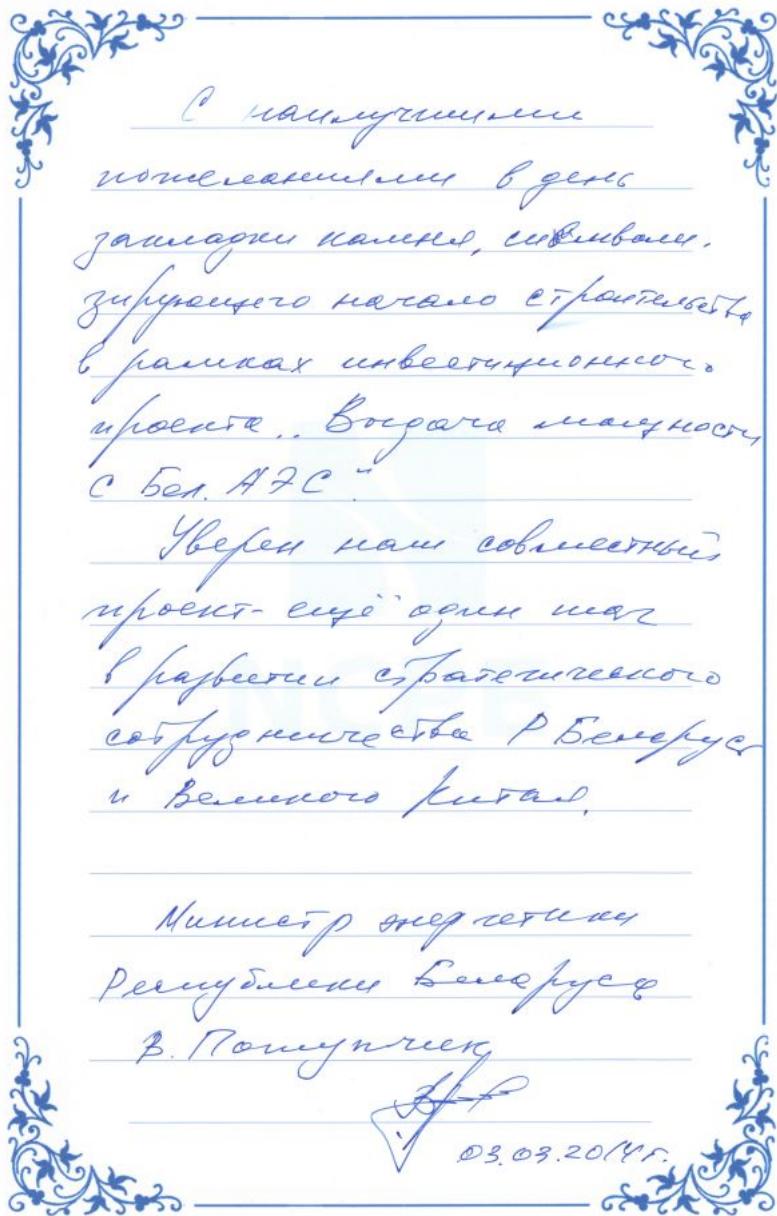 С наилучшими
пожеланиями в день
закладки камня, символи-
зирующего начало строительства
в рамках инвестиционного
проекта „Выдача мощности
с Бел. АЭС“.
Уверен наш совместный
проект - ещё один шаг
в развитии стратегического
сотрудничества Р Беларусь
и Великого Китая.
Министр энергетики
Республики Беларусь
В. Потупчик
03.03.2014 г.
NCPE